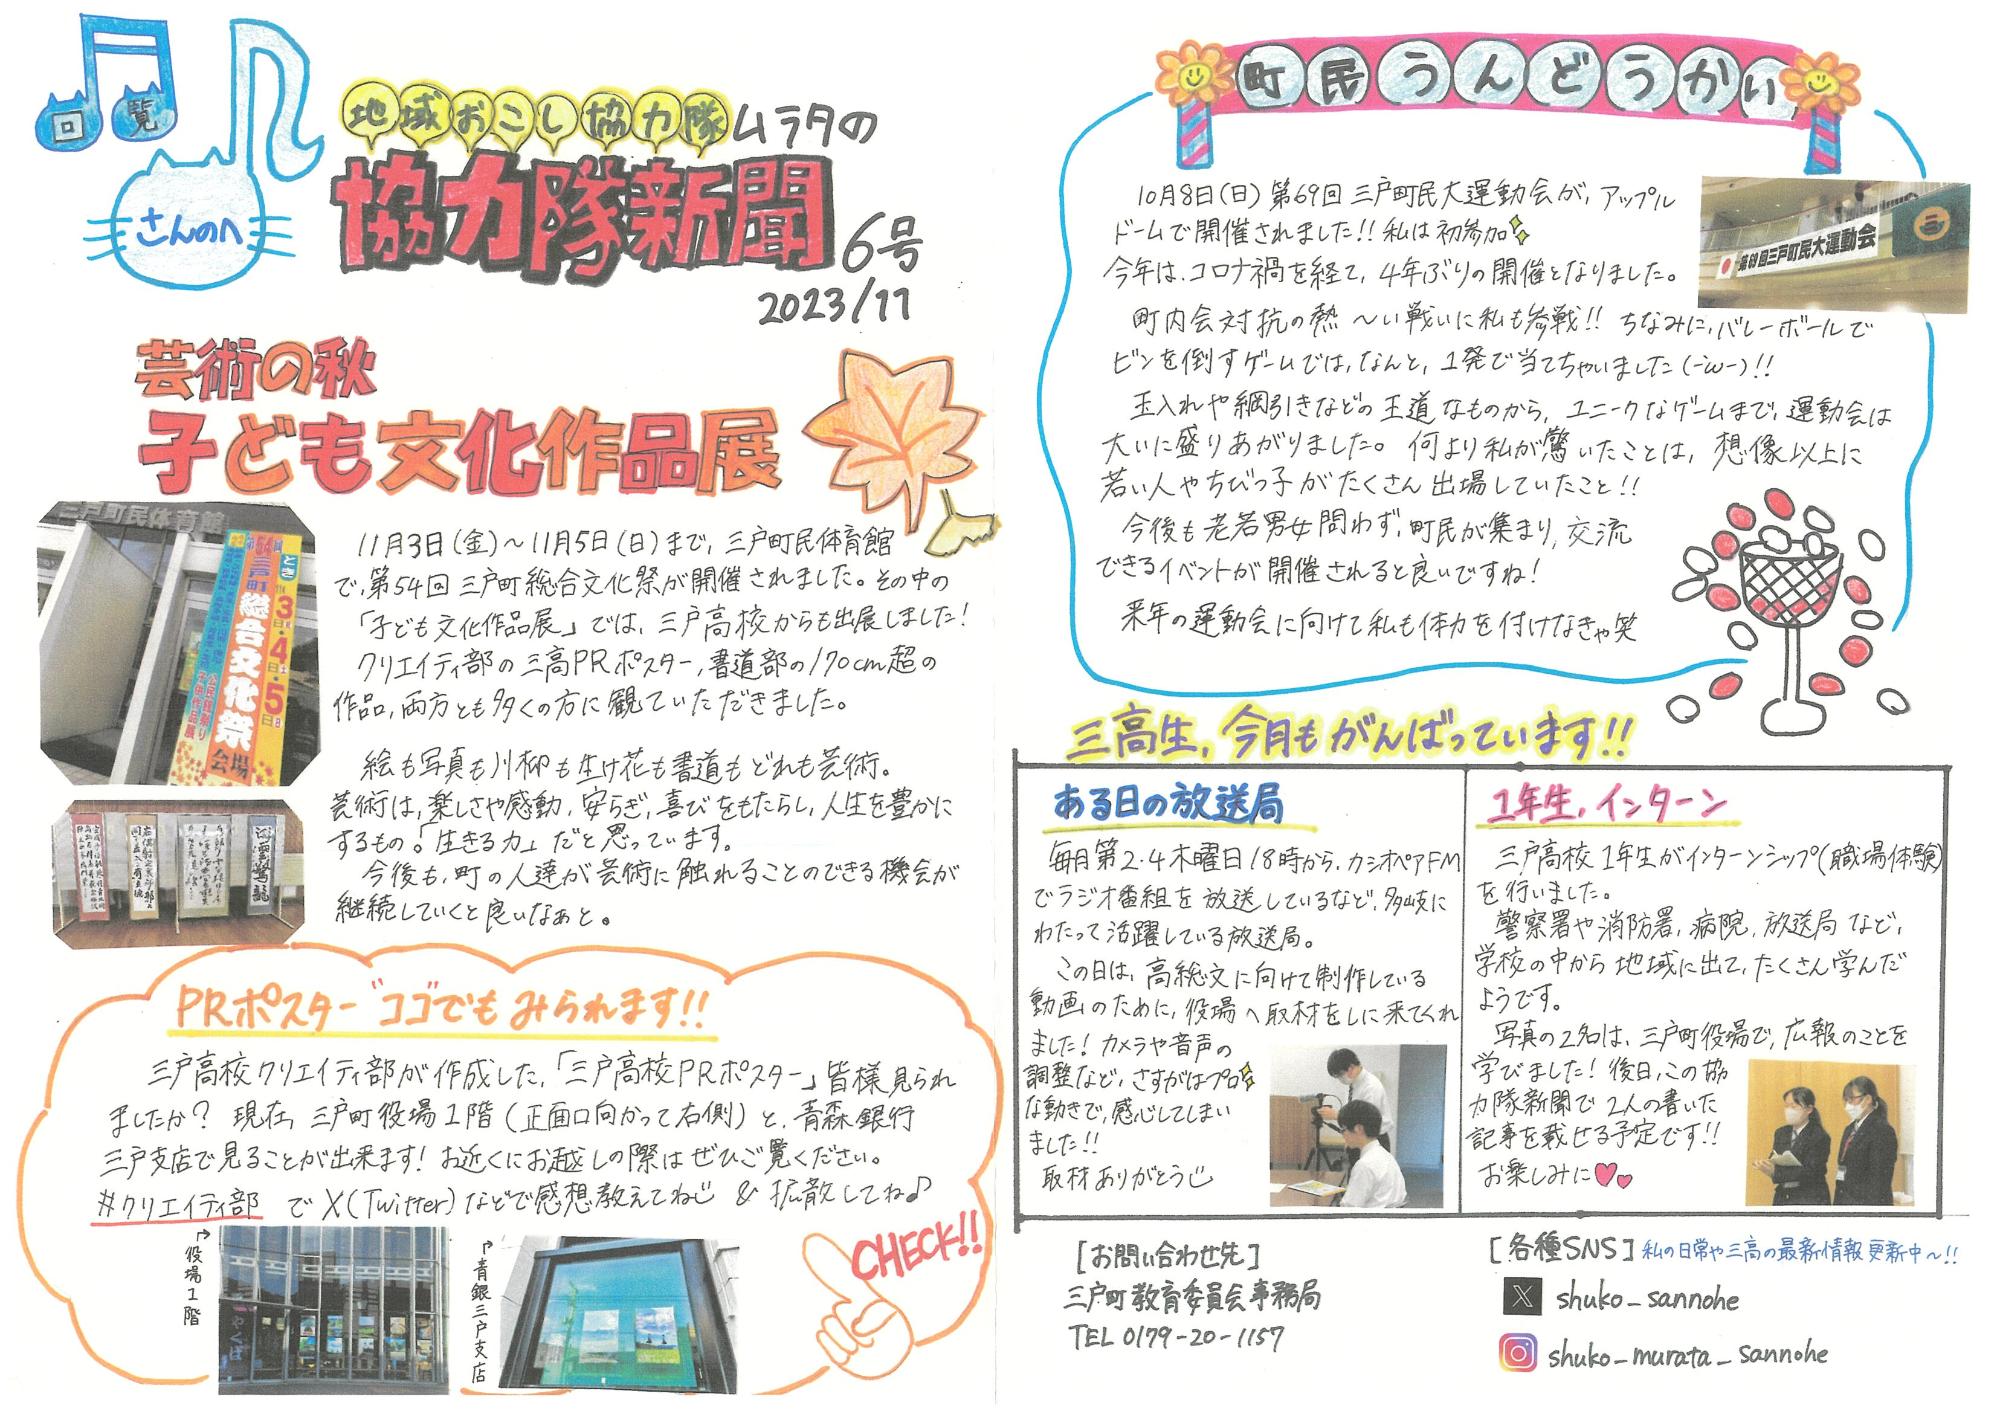 回覧
さんのへ
地域おこし協力隊ムラタの
協力隊新聞
6号
2023/11
芸術の秋
子ども文化作品展
三戸町民体育館
第54回 三戸町
総合文化祭
会場
とき
3日・4日土・5日日
11月3日(金)〜11月5日(日)まで、三戸町民体育館
で、第54回三戸町総合文化祭が開催されました。その中の
「子ども文化作品展」では、三戸高校からも出展しました!
クリエイティ部の三高PRポスター,書道部の170cm超の
作品,両方とも多くの方に観ていただきました。
絵も写真も川柳も生け花も書道もどれも芸術。
芸術は、楽しさや感動,安らぎ,喜びをもたらし,人生を豊かに
するもの。「生きる力」だと思っています。
今後も,町の人達が芸術に触れることのできる機会が
継続していくと良いなぁと。
PRポスターココでもみられます!!
三戸高校クリエイティ部が作成した,「三戸高校PRポスター」皆様見られ
ましたか? 現在,三戸町役場1階(正面口向かって右側)と,青森銀行
三戸支店で見ることが出来ます!お近くにお越しの際はぜひご覧ください。
#クリエイティ部 でX(Twitter)などで感想教えてね & 拡散してね♪
→役場1階
→青銀三戸支店
CHECK!!
町民うんどうかい
10月8日(日)第69回三戸町民大運動会が,アップル
ドームで開催されました!!私は初参加
今年は,コロナ禍を経て,4年ぶりの開催となりました。
町内会対抗の熱〜い戦いに私も参戦!!ちなみに,バレーボールで
ピンを倒すゲームでは,なんと,1発で当てちゃいました(-ω-)!!
玉入れや綱引きなどの王道なものから,ユニークなゲームまで,運動会は
大いに盛りあがりました。何より私が驚いたことは,想像以上に
若い人やちびっ子がたくさん出場していたこと!!
今後も老若男女問わず,町民が集まり,交流
できるイベントが開催されると良いですね!
来年の運動会に向けて私も体力を付けなきゃ笑
三戸町民大運動会
三高生,今月もがんばっています!!
ある日の放送局
毎月第2・4木曜日18時から,カシオペアFM
でラジオ番組を放送しているなど,多岐に
わたって活躍している放送局。
この日は,高総文に向けて制作している
動画のために,役場へ取材をしに来てくれ
ました!カメラや音声の
調整など,さすがはプロ
な動きで,感心してしまい
ました!!
取材ありがとう
1年生,インターン
三戸高校1年生がインターンシップ(職場体験)
を行いました。
警察署や消防署,病院,放送局など,
学校の中から地域に出て,たくさん学んだ
ようです。
写真の2名は,三戸町役場で,広報のことを
学びました!後日,この協
力隊新聞で2人の書いた
記事を載せる予定です!!
お楽しみに
[お問い合わせ先]
三戸町教育委員会事務局
TEL 0179-20-1157
[各種SNS]私の日常や三高の最新情報更新中〜!!
X shuko_sannohe
shuko_murata_sannohe